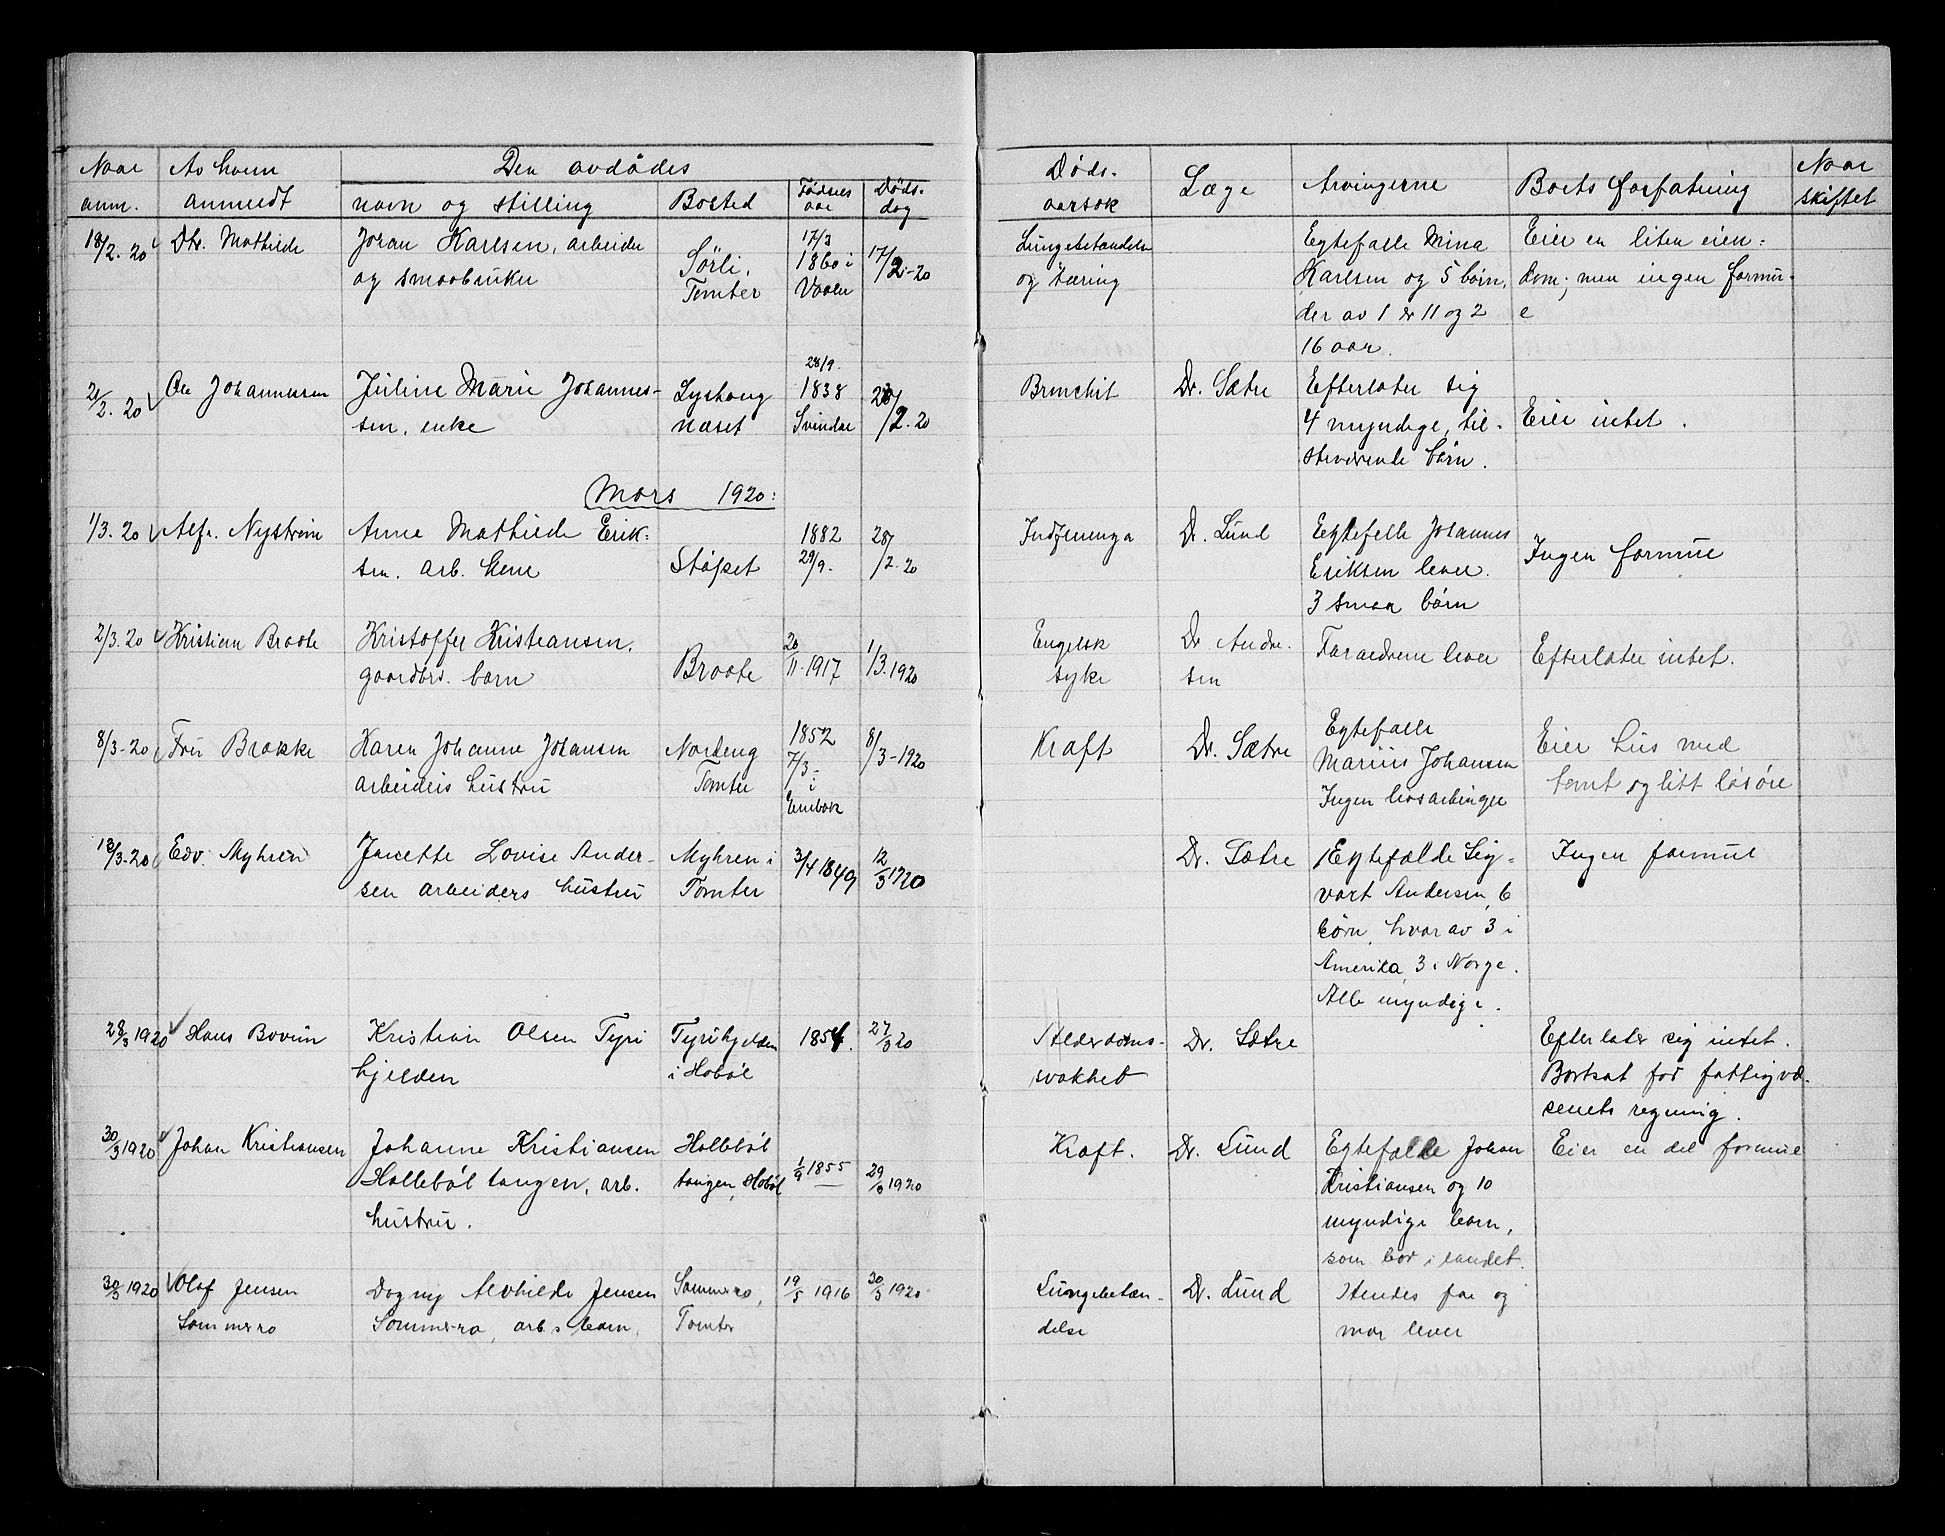 Naar anm. | Av hvem anmeldt | Den avdødes navn og stilling | Bosted | Fødsels aar | Døds- dag | Døds- aarsak | Læge | Arvingerne | Boets forfatning | Naar skiftet
18/2. 20 | Dtr. Mathilde | Johan Karlsen, arbeider | Sørli, | 17/3 | 17/2-20 | Lungebetændelse | | Egtefælle Mina | Eier en liten eien-
og smaabruker | Tomter | 1860 i | og tæring | Karlsen og 5 børn, | dom; men ingen formu-
Vaaler | der av 1 er 11 og 2 | e
16 aar.
21/2. 20 | Ole Johannessen | Juline Marie Johannes- | Lystang | 28/9. 1838 | 20/2. 20 | Bronchit | Dr. Sætre | Efterlater sig
sen, enke | næset | Svindal | 4 myndige, til- | Eier intet.
stedeværende børn.
Mars 1920:
1/3. 20 | Alfr. Nystrøm | Anne Mathilde Erik- | 1882 | 28/2. 20 | Dr. Lund | Egtefelle Johannes
sen. arb. kone | Støpet | 29/9. | Eriksen lever. | Ingen formue
3 smaa børn
2/3. 20 | Kristian Braate | Kristoffer Kristiansen, | 20/11-1917 | 1/3. 1920 | Engelsk | Dr. Andre- | Forældrene lever | Efterlater intet.
gaardbrs. barn | Braate | syke | sen
8/3-20 | Fru Brakke | Karen Johanne Johansen | Nordeng | 1852 | 8/3-1920 | Kraft | Dr. Sætre | Egtefælle | Eier hus med
arbeiders hustru | Tomter | 7/3- i | Marius Johansen | tomt og litt løsøre
Enebak | Ingen livsarvinger
13/3-20 | Edv. Myhren | Janette Lovise Ander- | Myhren i | 3/4 1849 | 12/3 1920 | | Dr. Sætre | Egtefælde Sig- | Ingen formue
sen arbeiders hustru | Tomter | vart Andersen, 6
børn, hvor av 3 i
Amerika, 3 i Norge.
Alle myndige.
28/3 1920 | Hans Bovim | Kristian Olsen Tyri | Tyrihjelden | 1854. | 27/3 20 | Alderdoms- | Dr. Sætre | | Efterlater sig intet.
hjelden | i Hobøl | svakhet | Bortsat for fattigvæ-
senets regning.
30/3 1920 | Johan Kristiansen | Johanne Kristiansen | Hallebøl | 1/9 1855 | 29/3 1920 | Kraft. | Dr. Lund | Egtefælle Johan | Eier en del formue
Hallebøl tangen, arb. | tangen, Hobøl | Kristiansen og 10
hustru. | myndige barn,
som bor i landet.
30/3 1920 | Olaf Jensen | Dagny Alvhilde Jensen | Sommerro, | 19/5 1916 | 30/3 1920 | Lungebetæn- | Dr. Lund | Hendes far og
Sommerro | Sommerro, arb.s barn. | Tomter | delse | mor lever